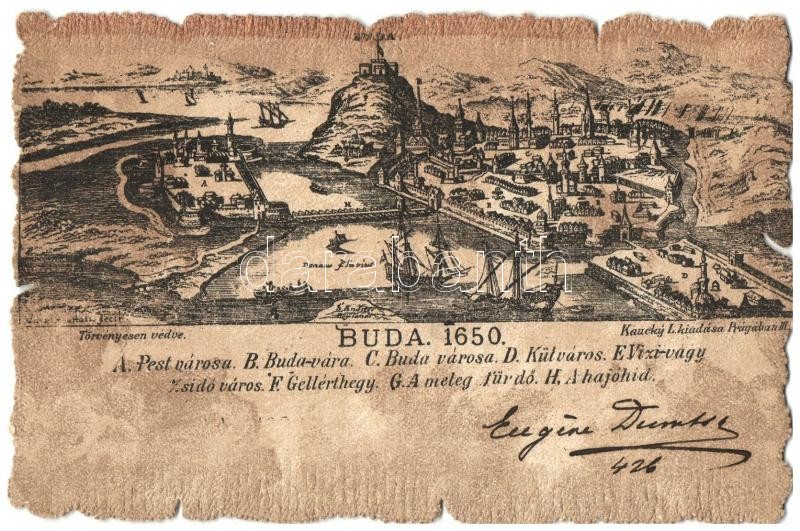 BUDA
A
H
Donau Fluvius
D
Törvényesen védve.
BUDA. 1650.
Kaucký L. kiadása Prágában III.
A. Pest városa. B. Buda-vára. C. Buda városa. D. Külváros. E Vizi-vagy
Zsidó város. F. Gellérthegy. G. A meleg fürdő. H. A hajóhid.
Eugène
426
darabanth